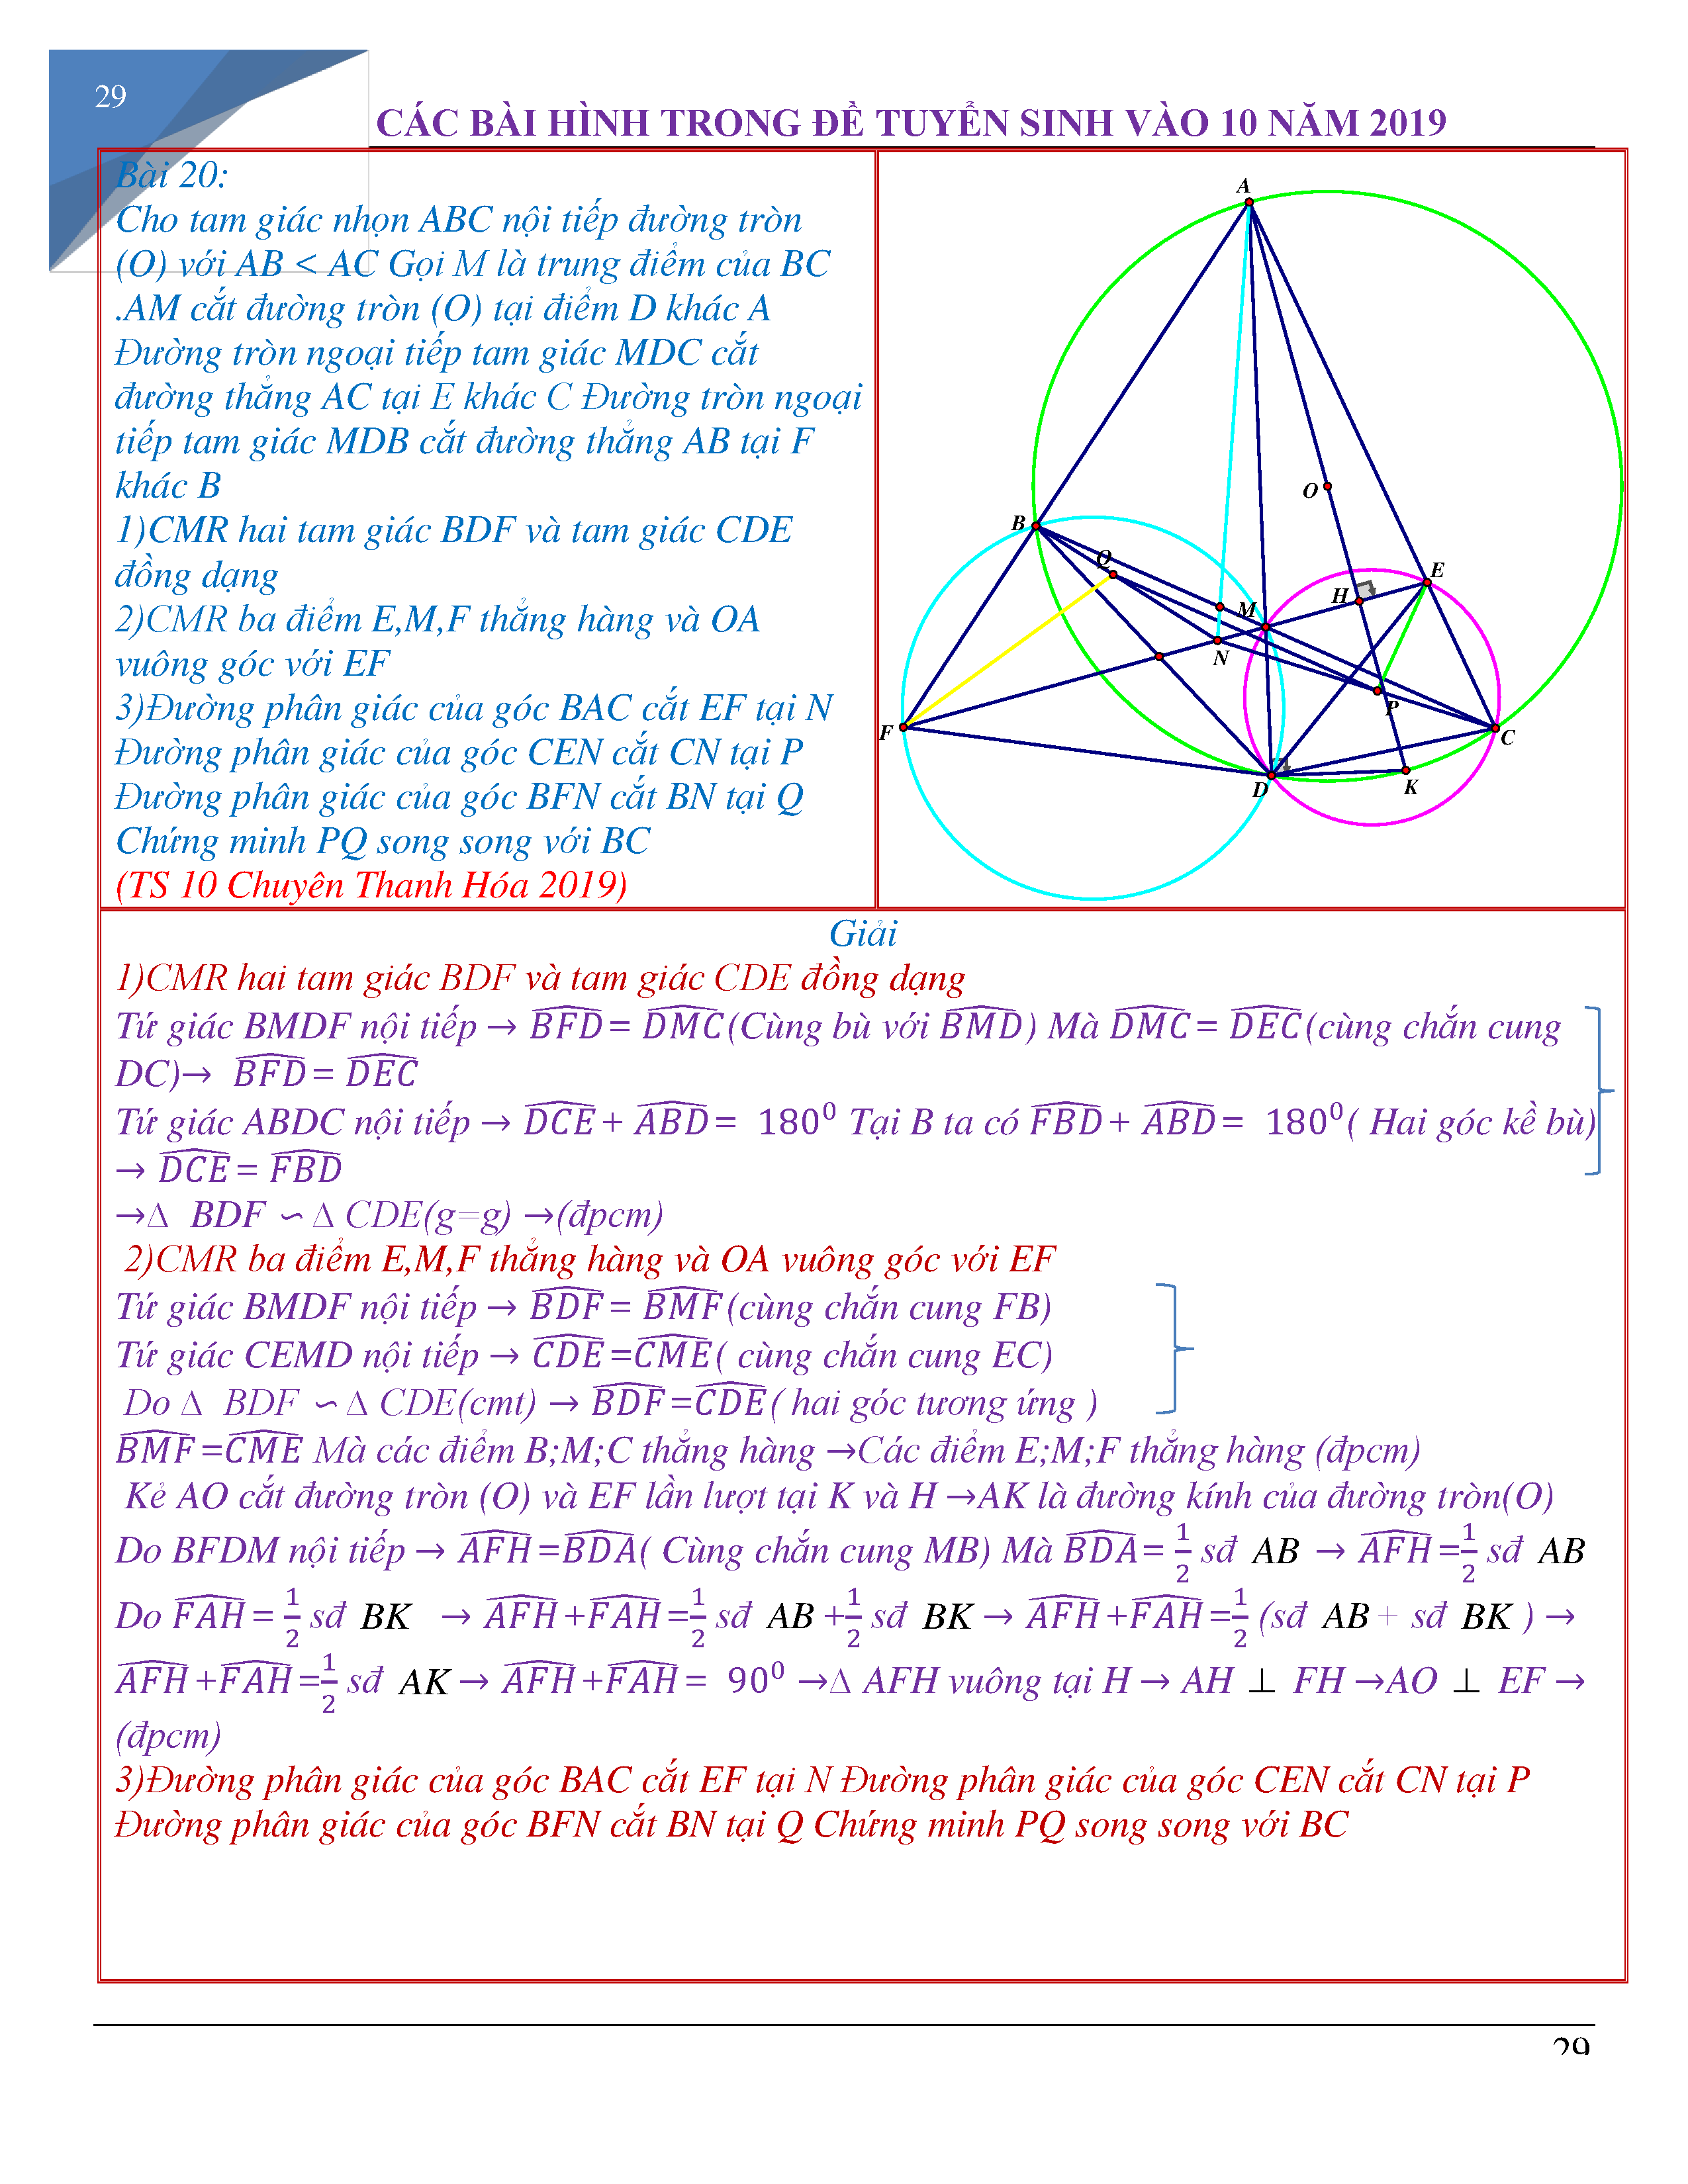 29
CÁC BÀI HÌNH TRONG ĐỀ TUYỂN SINH VÀO 10 NĂM 2019
Bài 20:
Cho tam giác nhọn ABC nội tiếp đường tròn
(O) với AB < AC Gọi M là trung điểm của BC
.AM cắt đường tròn (O) tại điểm D khác A
Đường tròn ngoại tiếp tam giác MDC cắt
đường thẳng AC tại E khác C Đường tròn ngoại
tiếp tam giác MDB cắt đường thẳng AB tại F
khác B
1)CMR hai tam giác BDF và tam giác CDE
đồng dạng
2)CMR ba điểm E,M,F thẳng hàng và OA
vuông góc với EF
3)Đường phân giác của góc BAC cắt EF tại N
Đường phân giác của góc CEN cắt CN tại P
Đường phân giác của góc BFN cắt BN tại Q
Chứng minh PQ song song với BC
(TS 10 Chuyên Thanh Hóa 2019)
A
O
B
Q
E
H
M
N
P
F
C
D
K
Giải
1)CMR hai tam giác BDF và tam giác CDE đồng dạng
Tứ giác BMDF nội tiếp → \widehat{BFD} = \widehat{DMC}(Cùng bù với \widehat{BMD}) Mà \widehat{DMC} = \widehat{DEC}(cùng chắn cung
DC)→ \widehat{BFD} = \widehat{DEC}
Tứ giác ABDC nội tiếp → \widehat{DCE} + \widehat{ABD} = 180⁰ Tại B ta có \widehat{FBD} + \widehat{ABD} = 180⁰( Hai góc kề bù)
→ \widehat{DCE} = \widehat{FBD}
→∆ BDF ∽ ∆ CDE(g=g) →(đpcm)
2)CMR ba điểm E,M,F thẳng hàng và OA vuông góc với EF
Tứ giác BMDF nội tiếp → \widehat{BDF} = \widehat{BMF}(cùng chắn cung FB)
Tứ giác CEMD nội tiếp → \widehat{CDE} =\widehat{CME}( cùng chắn cung EC)
Do ∆ BDF ∽ ∆ CDE(cmt) → \widehat{BDF} =\widehat{CDE}( hai góc tương ứng )
\widehat{BMF} =\widehat{CME} Mà các điểm B;M;C thẳng hàng →Các điểm E;M;F thẳng hàng (đpcm)
Kẻ AO cắt đường tròn (O) và EF lần lượt tại K và H →AK là đường kính của đường tròn(O)
Do BFDM nội tiếp → \widehat{AFH} =\widehat{BDA}( Cùng chắn cung MB) Mà \widehat{BDA} = \frac{1}{2} sđ AB → \widehat{AFH} =\frac{1}{2} sđ AB
Do \widehat{FAH} = \frac{1}{2} sđ BK → \widehat{AFH} +\widehat{FAH} =\frac{1}{2} sđ AB +\frac{1}{2} sđ BK → \widehat{AFH} +\widehat{FAH} =\frac{1}{2} (sđ AB + sđ BK ) →
\widehat{AFH} +\widehat{FAH} =\frac{1}{2} sđ AK → \widehat{AFH} +\widehat{FAH} = 90⁰ →∆ AFH vuông tại H → AH ⊥ FH →AO ⊥ EF →
(đpcm)
3)Đường phân giác của góc BAC cắt EF tại N Đường phân giác của góc CEN cắt CN tại P
Đường phân giác của góc BFN cắt BN tại Q Chứng minh PQ song song với BC
29